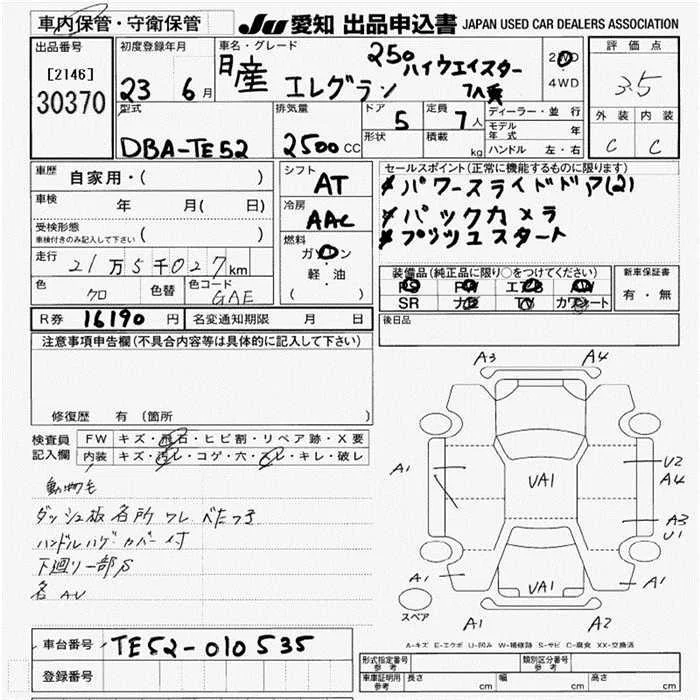 車内保管・守衛保管 JU 愛知 出品申込書 JAPAN USED CAR DEALERS ASSOCIATION
出品番号
[2146]
30370
初度登録年月
23 6月
車名・グレード
日産 エレグラン 250 ハイウエイスター 7人乗
2WD
4WD
評価点
3.5
外装 内装
C C
型式
DBA-TE52
排気量
2500 CC
ドア 5
形状
定員 7人
積載 kg
ディーラー・並行
モデル年式 年
ハンドル 左・右
車歴 自家用・( )
車検 年 月( 日)
受検形態
車検付きのみ記入して下さい ( )
走行 21万5千027km
色 クロ 色替 色コード GAE
シフト AT
冷房 AAC
燃料
ガソリン
軽・油
( )
セールスポイント(正常に機能するものに限ります)
パワースライドドア(2)
バックカメラ
プッツユスタート
装備品(純正品に限り○をつけてください)
PS PW エアB AW
SR ナビ TV カワシート
新車保証書
有・無
R券 16190円 名変通知期限 月 日
後日品
注意事項申告欄(不具合内容等は具体的に記入して下さい)
修復歴 有(箇所 )
検査員記入欄
FW キズ・飛石・ヒビ割・リペア跡・X要
内装 キズ・汚レ・コゲ・穴・スレ・キレ・破レ
動物毛
ダッシュ板各所ワレ べたつき
ハンドルハゲ カバー付
下廻リ一部S
各AU
A3 A4
A1 VA1 U2
A4
A3
U1
A1 VA1 A1
A1 A2
スペア
A-キズ E-エクボ U-凹み W-補修跡 S-サビ C-腐食 XX-交換済
車台番号 TE52-010535
登録番号
形式指定番号
参考
類別区分番号
参考
車庫証明用
参考
長さ cm 幅 cm 高さ cm